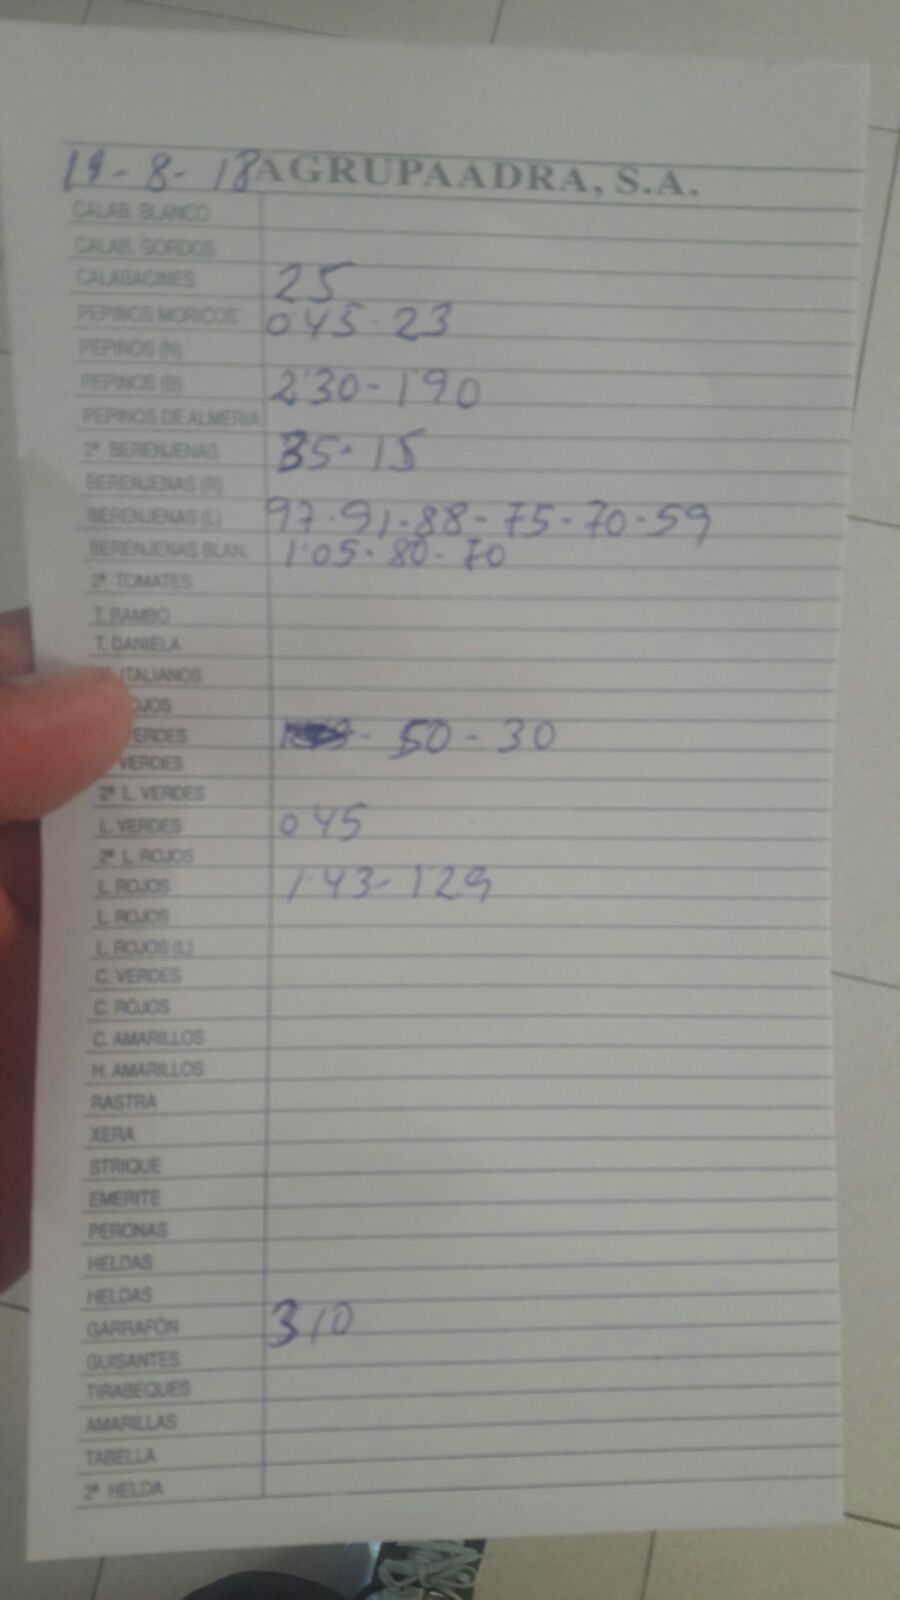 19-8-18 AGRUPAADRA, S.A.
CALAB. BLANCO
CALAB. GORDOS
CALABACINES 25
PEPINOS MORICOS 045-23
PEPINOS (N)
PEPINOS (B) 2'30-190
PEPINOS DE ALMERIA
2ª BERENJENAS 35-15
BERENJENAS (R)
BERENJENAS (L) 97-91-88-75-70-59
BERENJENAS BLAN. 1'05-80-70
2ª TOMATES
T. RAMBO
T. DANIELA
ITALIANOS
OJOS
VERDES - 50-30
VERDES
2ª L. VERDES
L. VERDES 045
2ª L. ROJOS
L. ROJOS 1'43-129
L. ROJOS
L. ROJOS (L)
C. VERDES
C. ROJOS
C. AMARILLOS
H. AMARILLOS
RASTRA
XERA
STRIQUE
EMERITE
PERONAS
HELDAS
HELDAS
GARRAFÓN 310
GUISANTES
TIRABEQUES
AMARILLAS
TABELLA
2ª HELDA